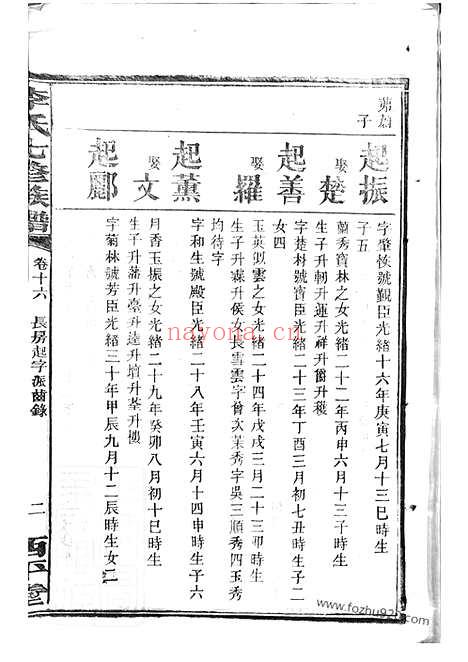 子
起振
字肇恢號覲臣光緒十六年庚寅七月十三巳時生
子五
娶 楚
蘭秀寶林之女光緒二十二年丙申六月十三子時生
生子升軔升運升祥升爵升穫
起善
字楚材號寶臣光緒二十三年丁酉三月初七丑時生子二
女四
娶 羅
玉英似雲之女光緒二十四年戊戌三月二十三卯時生
生子升霖升侯女長雪雲字曾次茉秀字吳三順秀四玉秀
均待字
起薰
字和生號殿臣光緒二十八年壬寅六月十四申時生子六
娶 文
月香玉振之女光緒二十九年癸卯八月初十巳時生
生子升藩升臺升達升墳升荃升樓
起酈
字菊林號芳臣光緒三十年甲辰九月十二辰時生女二
李氏七修族譜
卷十六
長房起字派齒錄
二
西平堂
nayona.cn
www.fozhu920.com